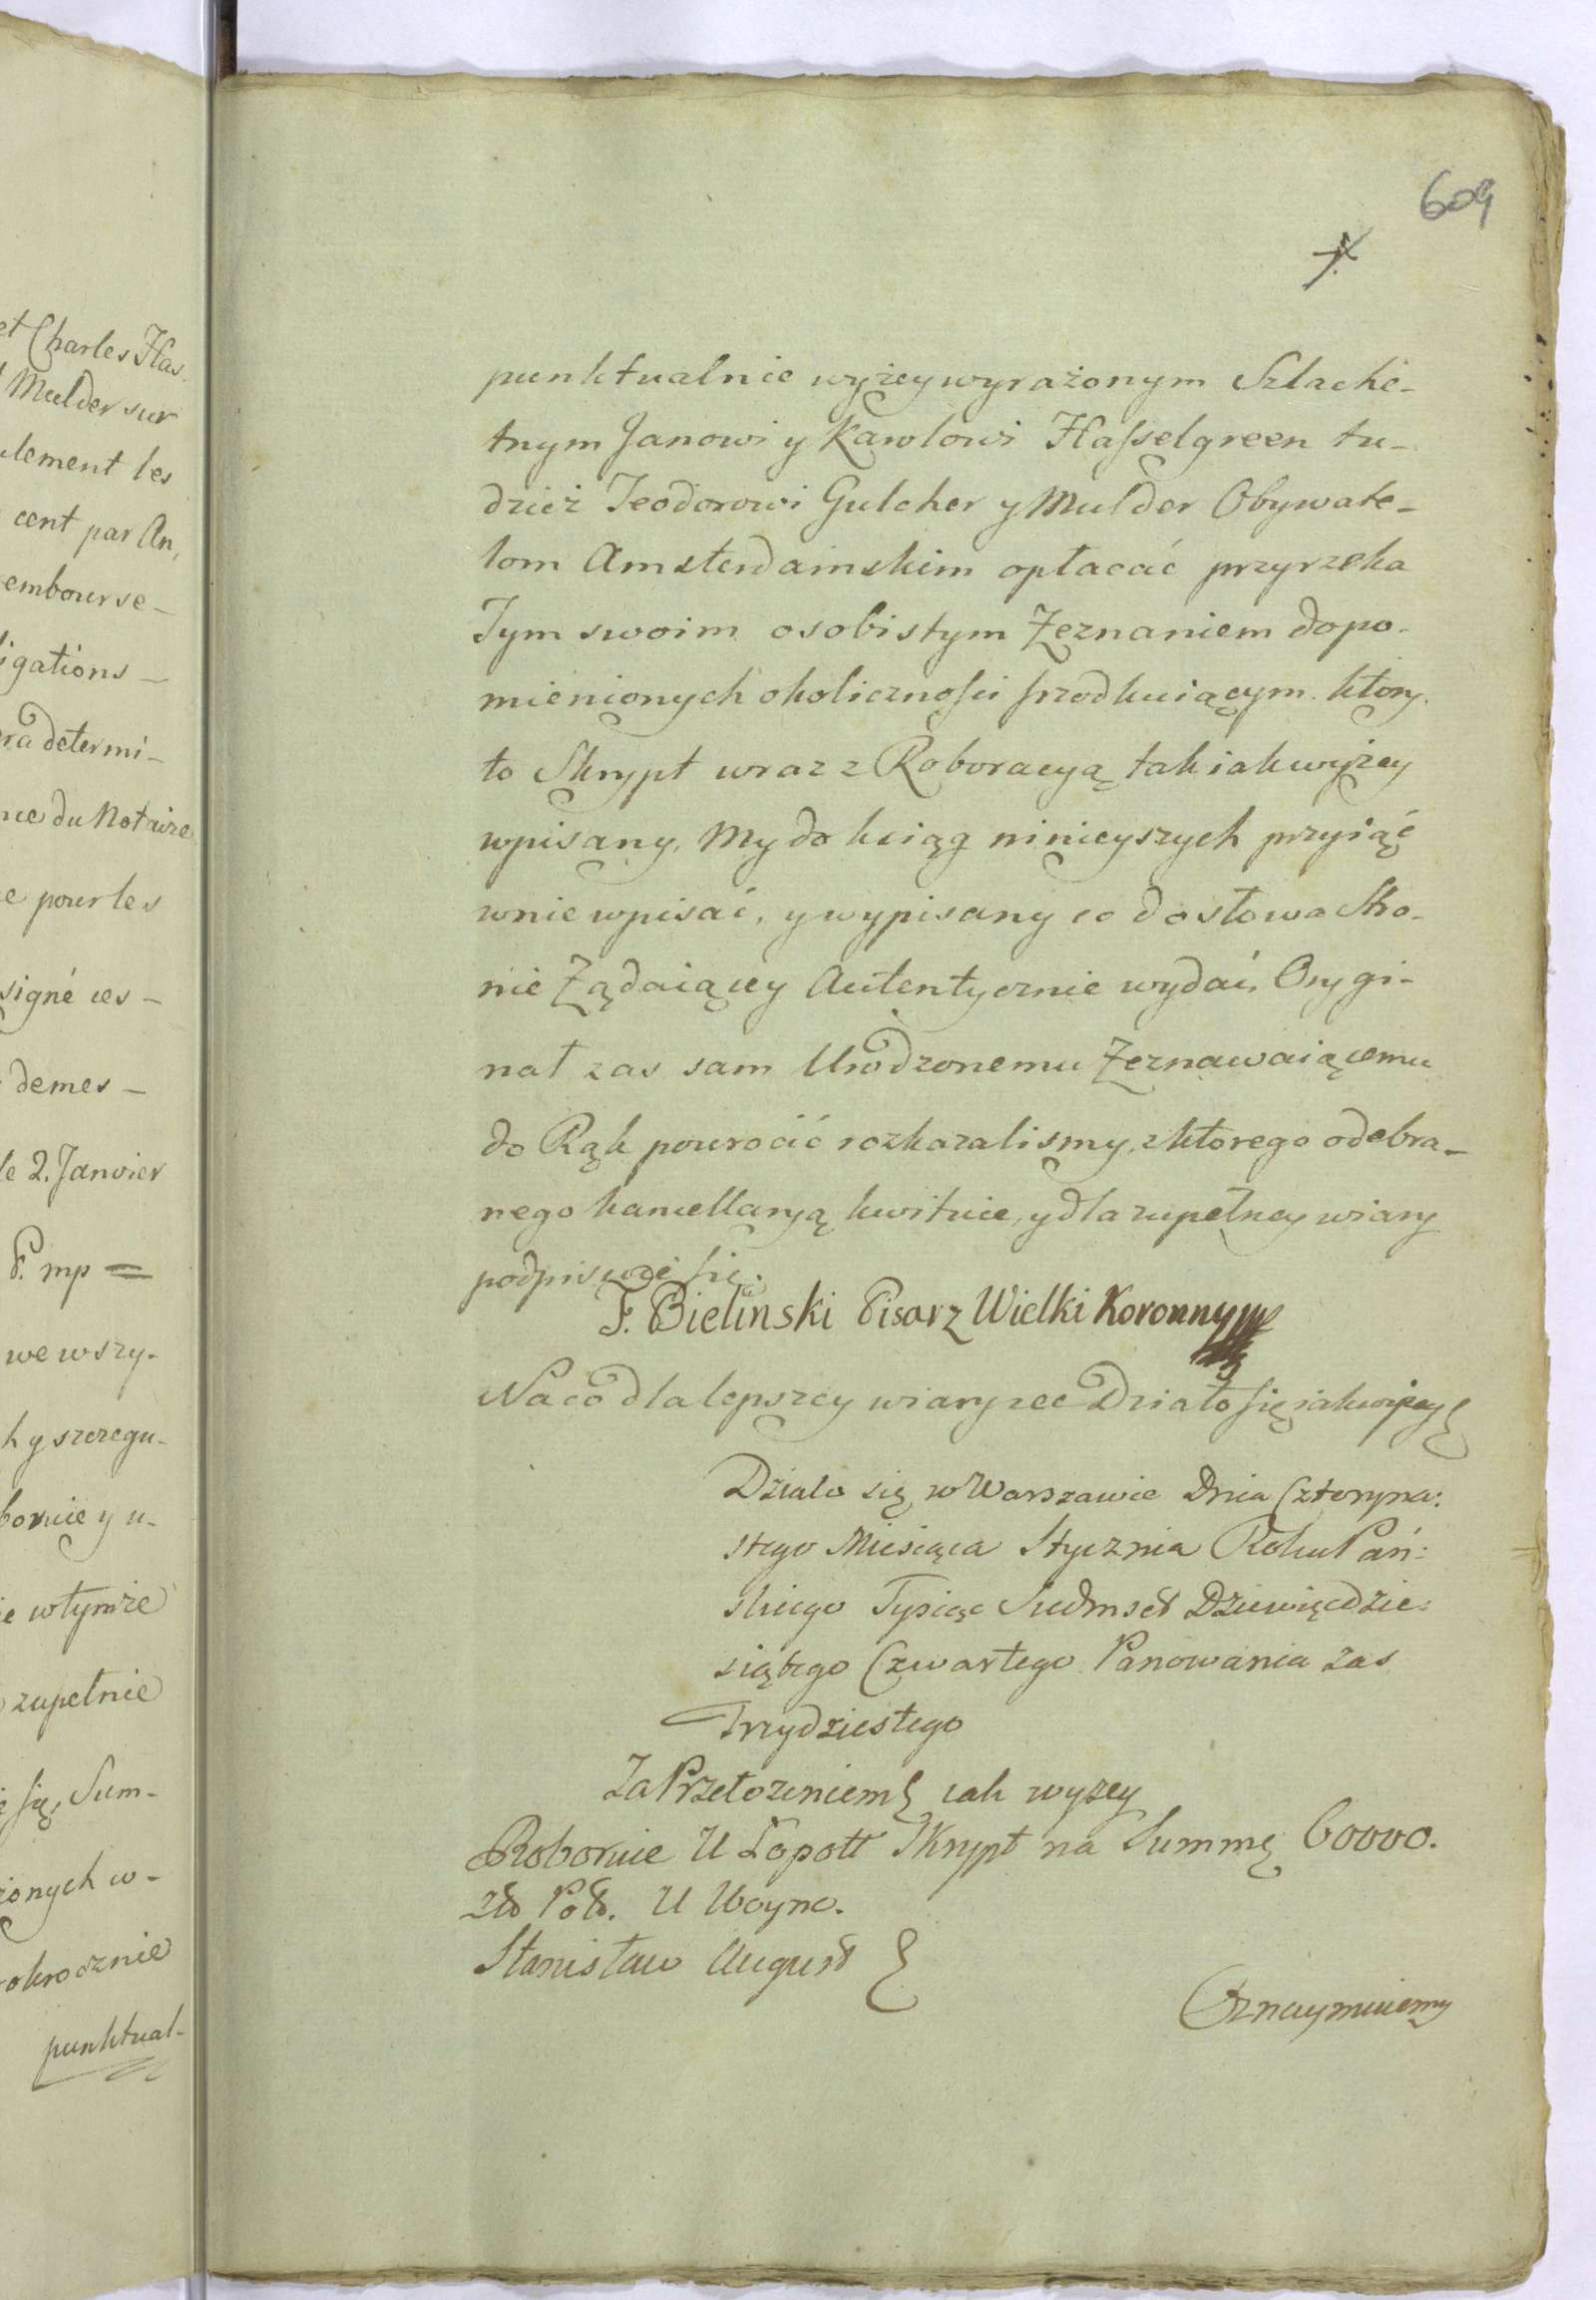 et Charles Has-
Mulder sur
ulement les
cent par An,
embourse-
igations-
ra determi-
nce du Notaire
e pour les
signé ces-
demes-
le 2. Janvier
P. mp =
we wszy-
h y szczegu-
boruie y u-
ie w tymże
zupełnie
się, Sum-
żonych w-
okrocznie
punktual-
609
punktualnie wyżey wyrażonym Szlache-
tnym Janowi y Karolowi Hasselgreen tu-
dzież Teodorowi Gulcher y Mulder Obywate-
lom Amsterdamskim opłacać przyrzeka
Tym swoim osobistym Zeznaniem dopo-
mienionych okolicznosci srzodkuiącym. ktory.
to Skrypt wraz z Roboracyą tak iak wyżey
wpisany, My do ksiąg ninieyszych przyiąć
w nie wpisać, y wypisany co do słowa Stro-
nie Ządaiącey Autentycznie wydać, Orygi-
nał zas sam Urodzonemu Zeznawaiącemu
do Rąk powrocić rozkazalismy, z ktorego odebra-
nego kancellaryą kwituie, y dla zupełney wiary
podpisuie się.
F. Bieliński Pisarz Wielki Koronny mp
Na co dla lepszey wiary zee Działo się iak wyżey
Działo się w Warszawie Dnia Czteryna:
stego Miesiąca Stycznia Roku Pań:
skiego Tysiąc Siedmset Dziewięćdzie:
siątego Czwartego Panowania zas
Trzydziestego
Za Przełozeniem iak wyzey
Roboruie U Łopott Skrypt na Summę 60000.
zło Pol. U Woyno.
Stanisław August
Oznaymuiemy